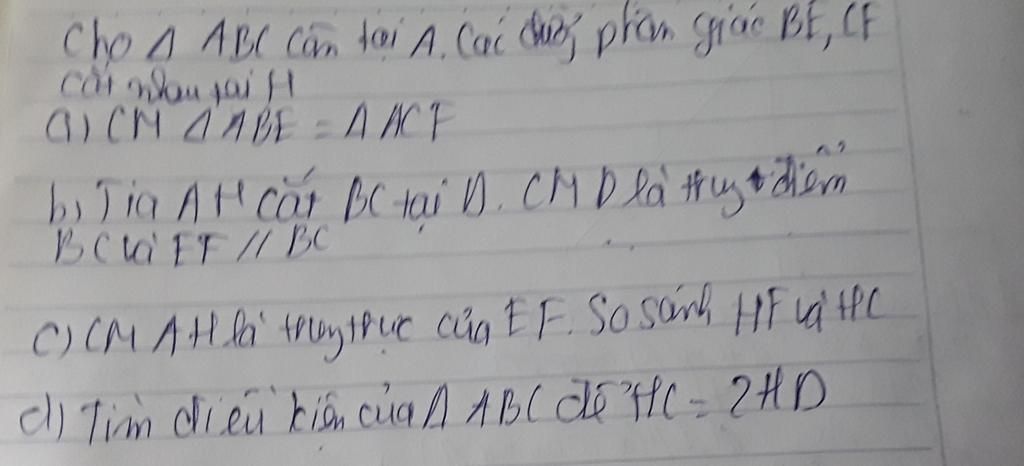 Cho Δ ABC cân tại A. Các đường phân giác BE, CF
cắt nhau tại H
a) CM Δ ABE = Δ ACF
b) Tia AH cắt BC tại D. CM D là trung điểm
BC và EF // BC
c) CM AH là trung trực của EF. So sánh HF và HC
d) Tìm điều kiện của Δ ABC để HC = 2HD